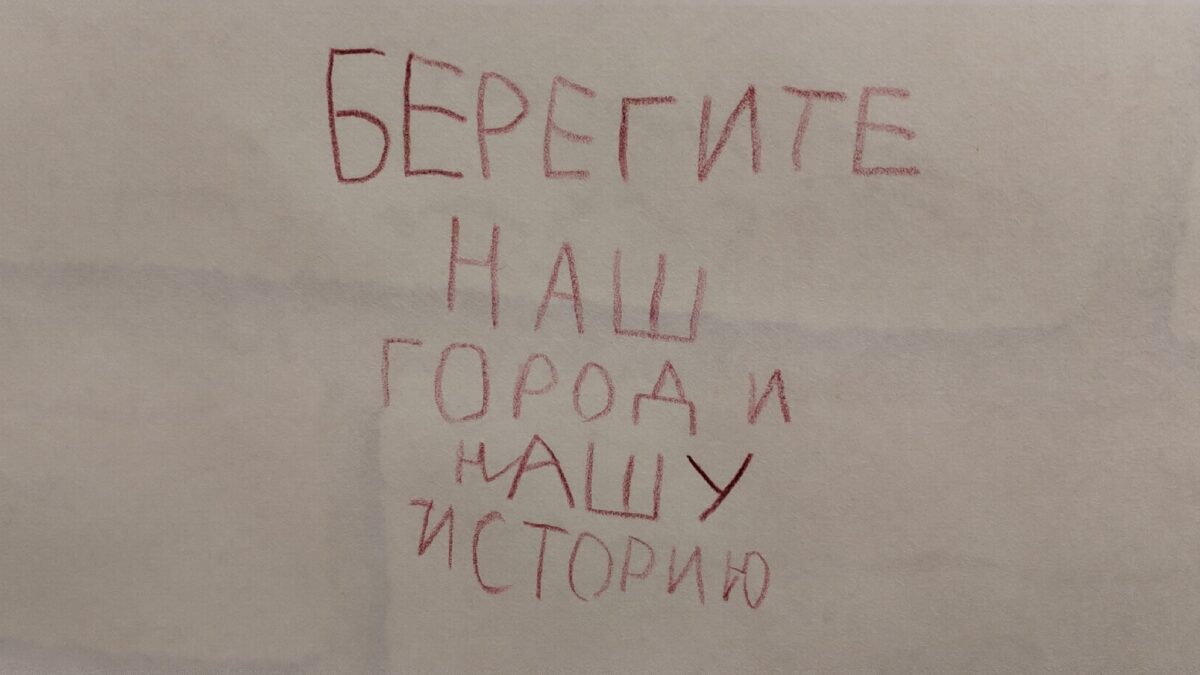 БЕРЕГИТЕ
НАШ
ГОРОД И
НАШУ
ИСТОРИЮ